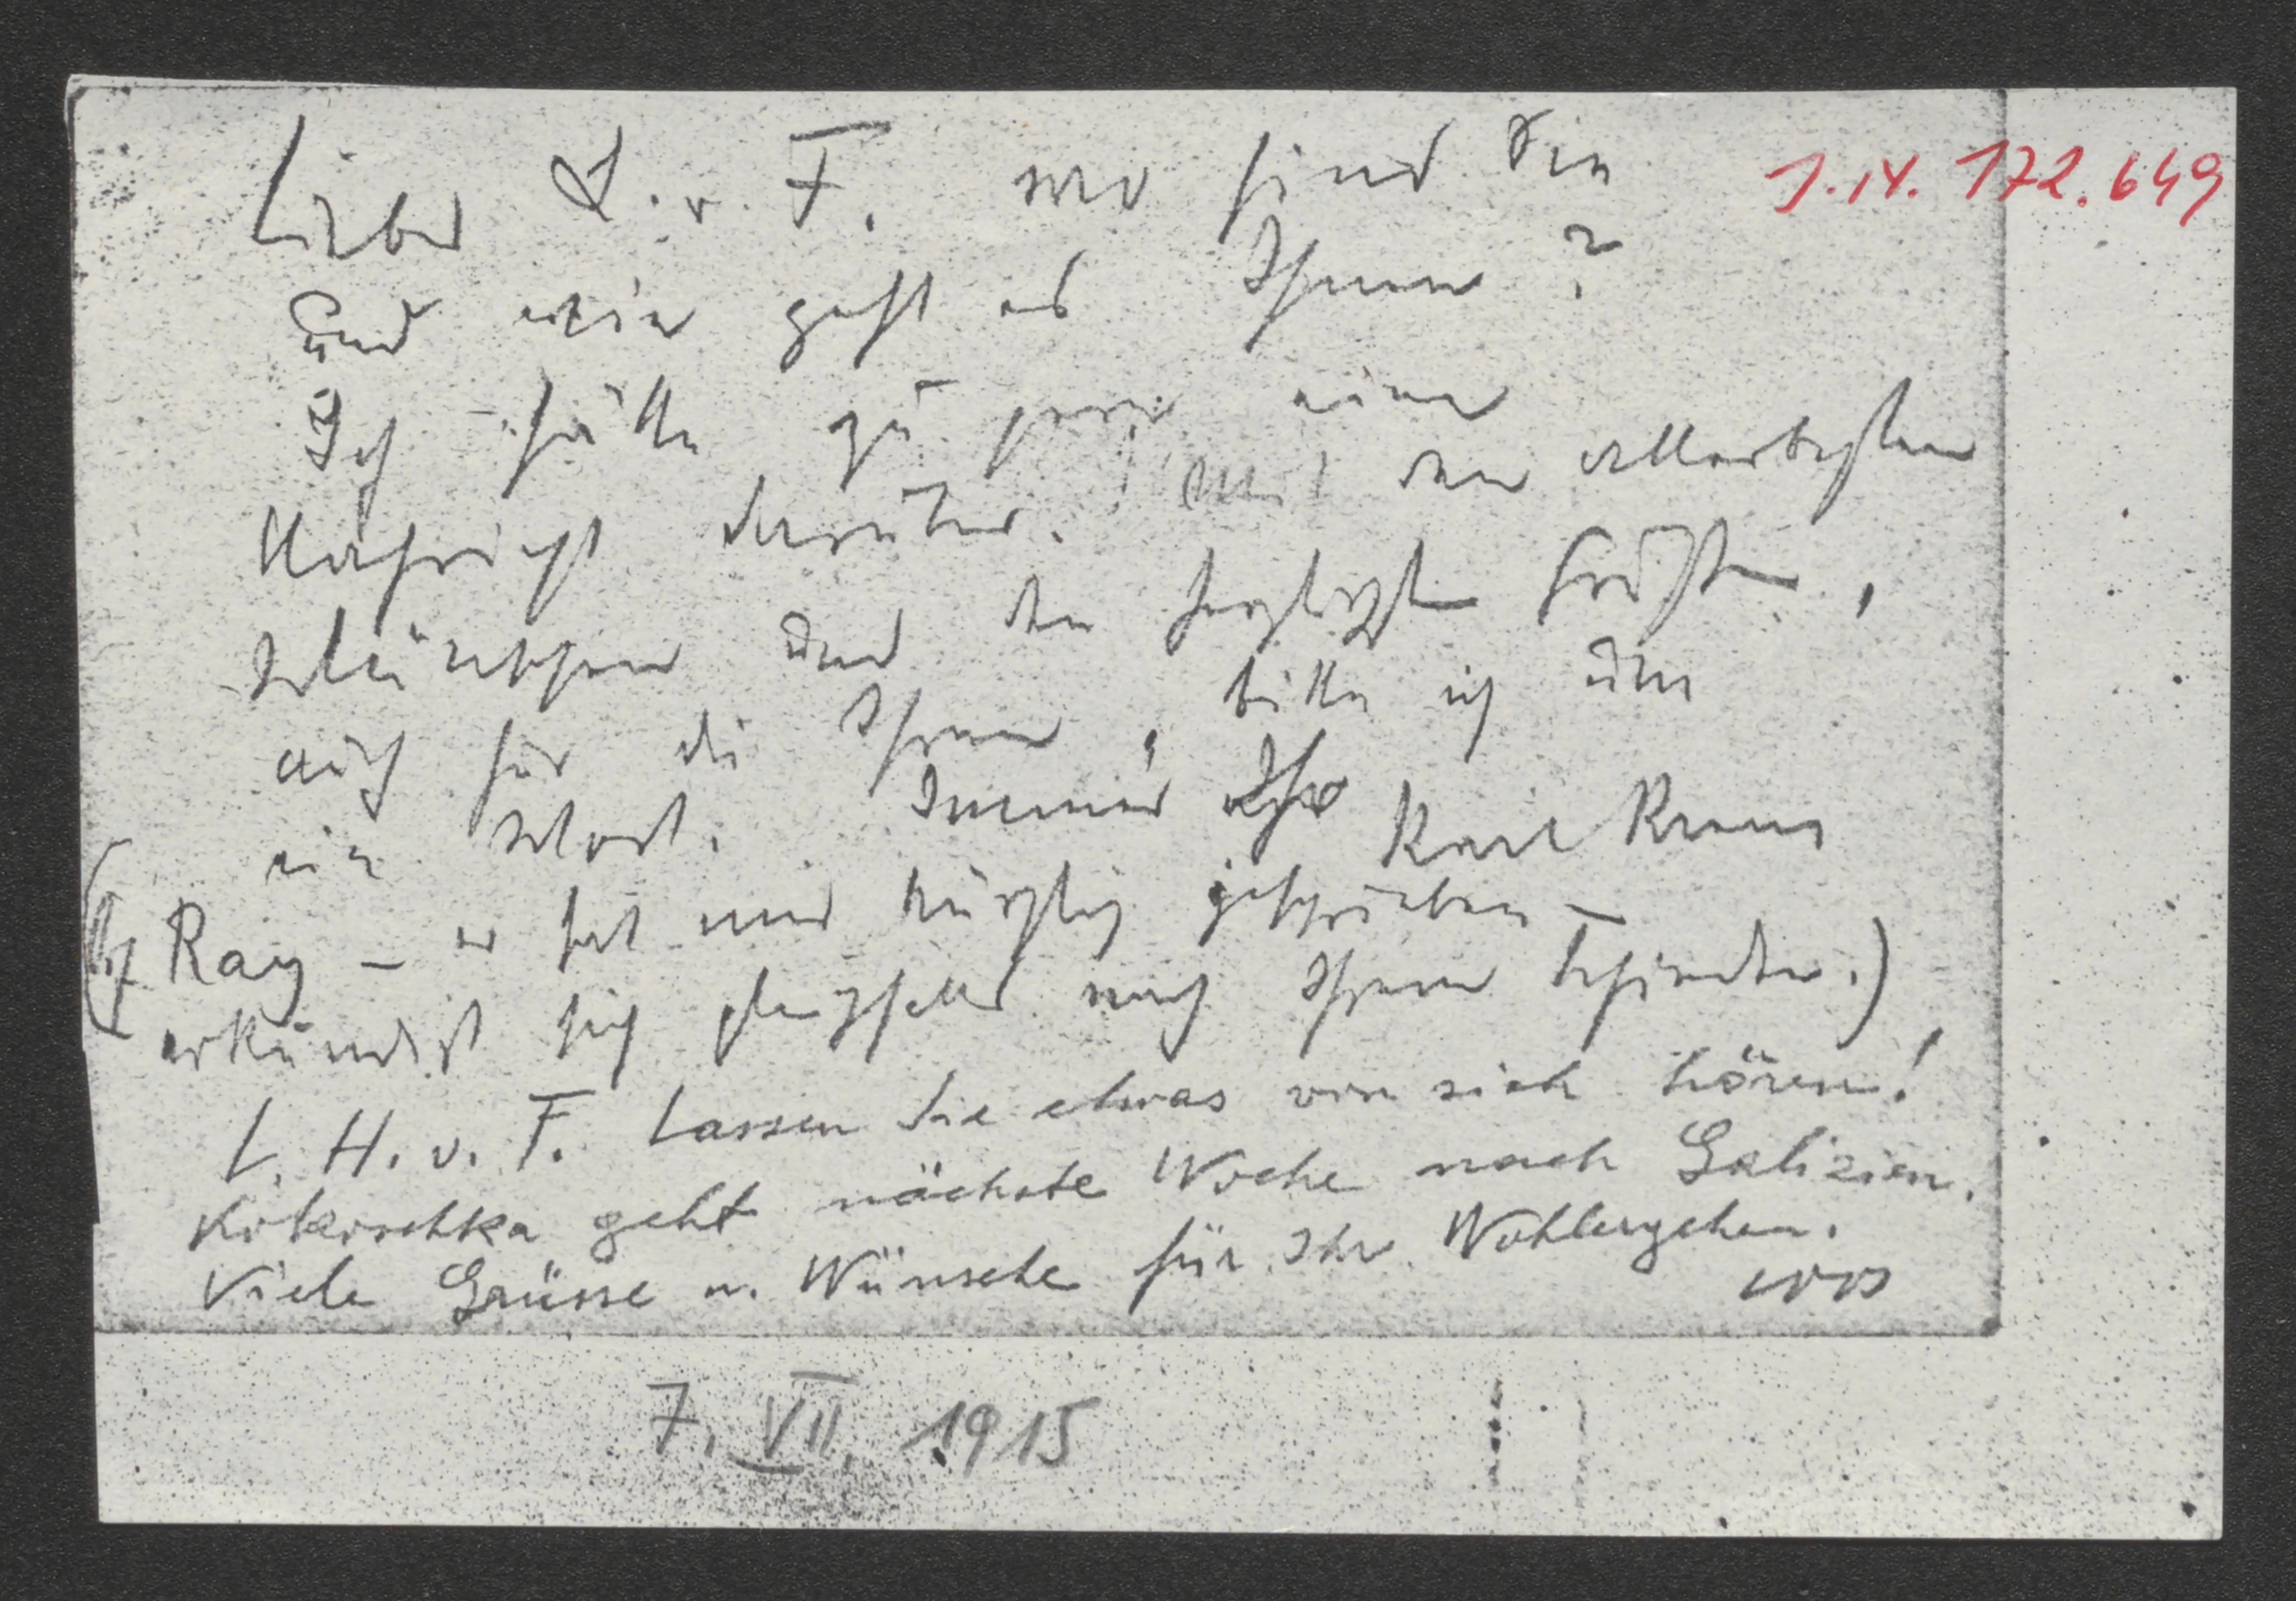 Lieber L. v. F. wo sind Sie
J. N. 172.649
Und wie geht es Ihnen?
Ich hätte zu gern eine
Nachricht darüber. Mit den allerbesten
Wünschen und den herzlichsten Grüßen,
auch für die Ihren, bitte ich um
ein Wort. Immer Ihr Karl Kraus
( Ray – er hat mir kürzlich geschrieben –
erkundigt sich nach Ihrem Befinden.)
L. H. v. F. Lassen Sie etwas von sich hören!
Kokoschka geht nächste Woche nach Galizien.
Viele Grüsse u. Wünsche für Ihr Wohlergehen.
7. VII. 1915